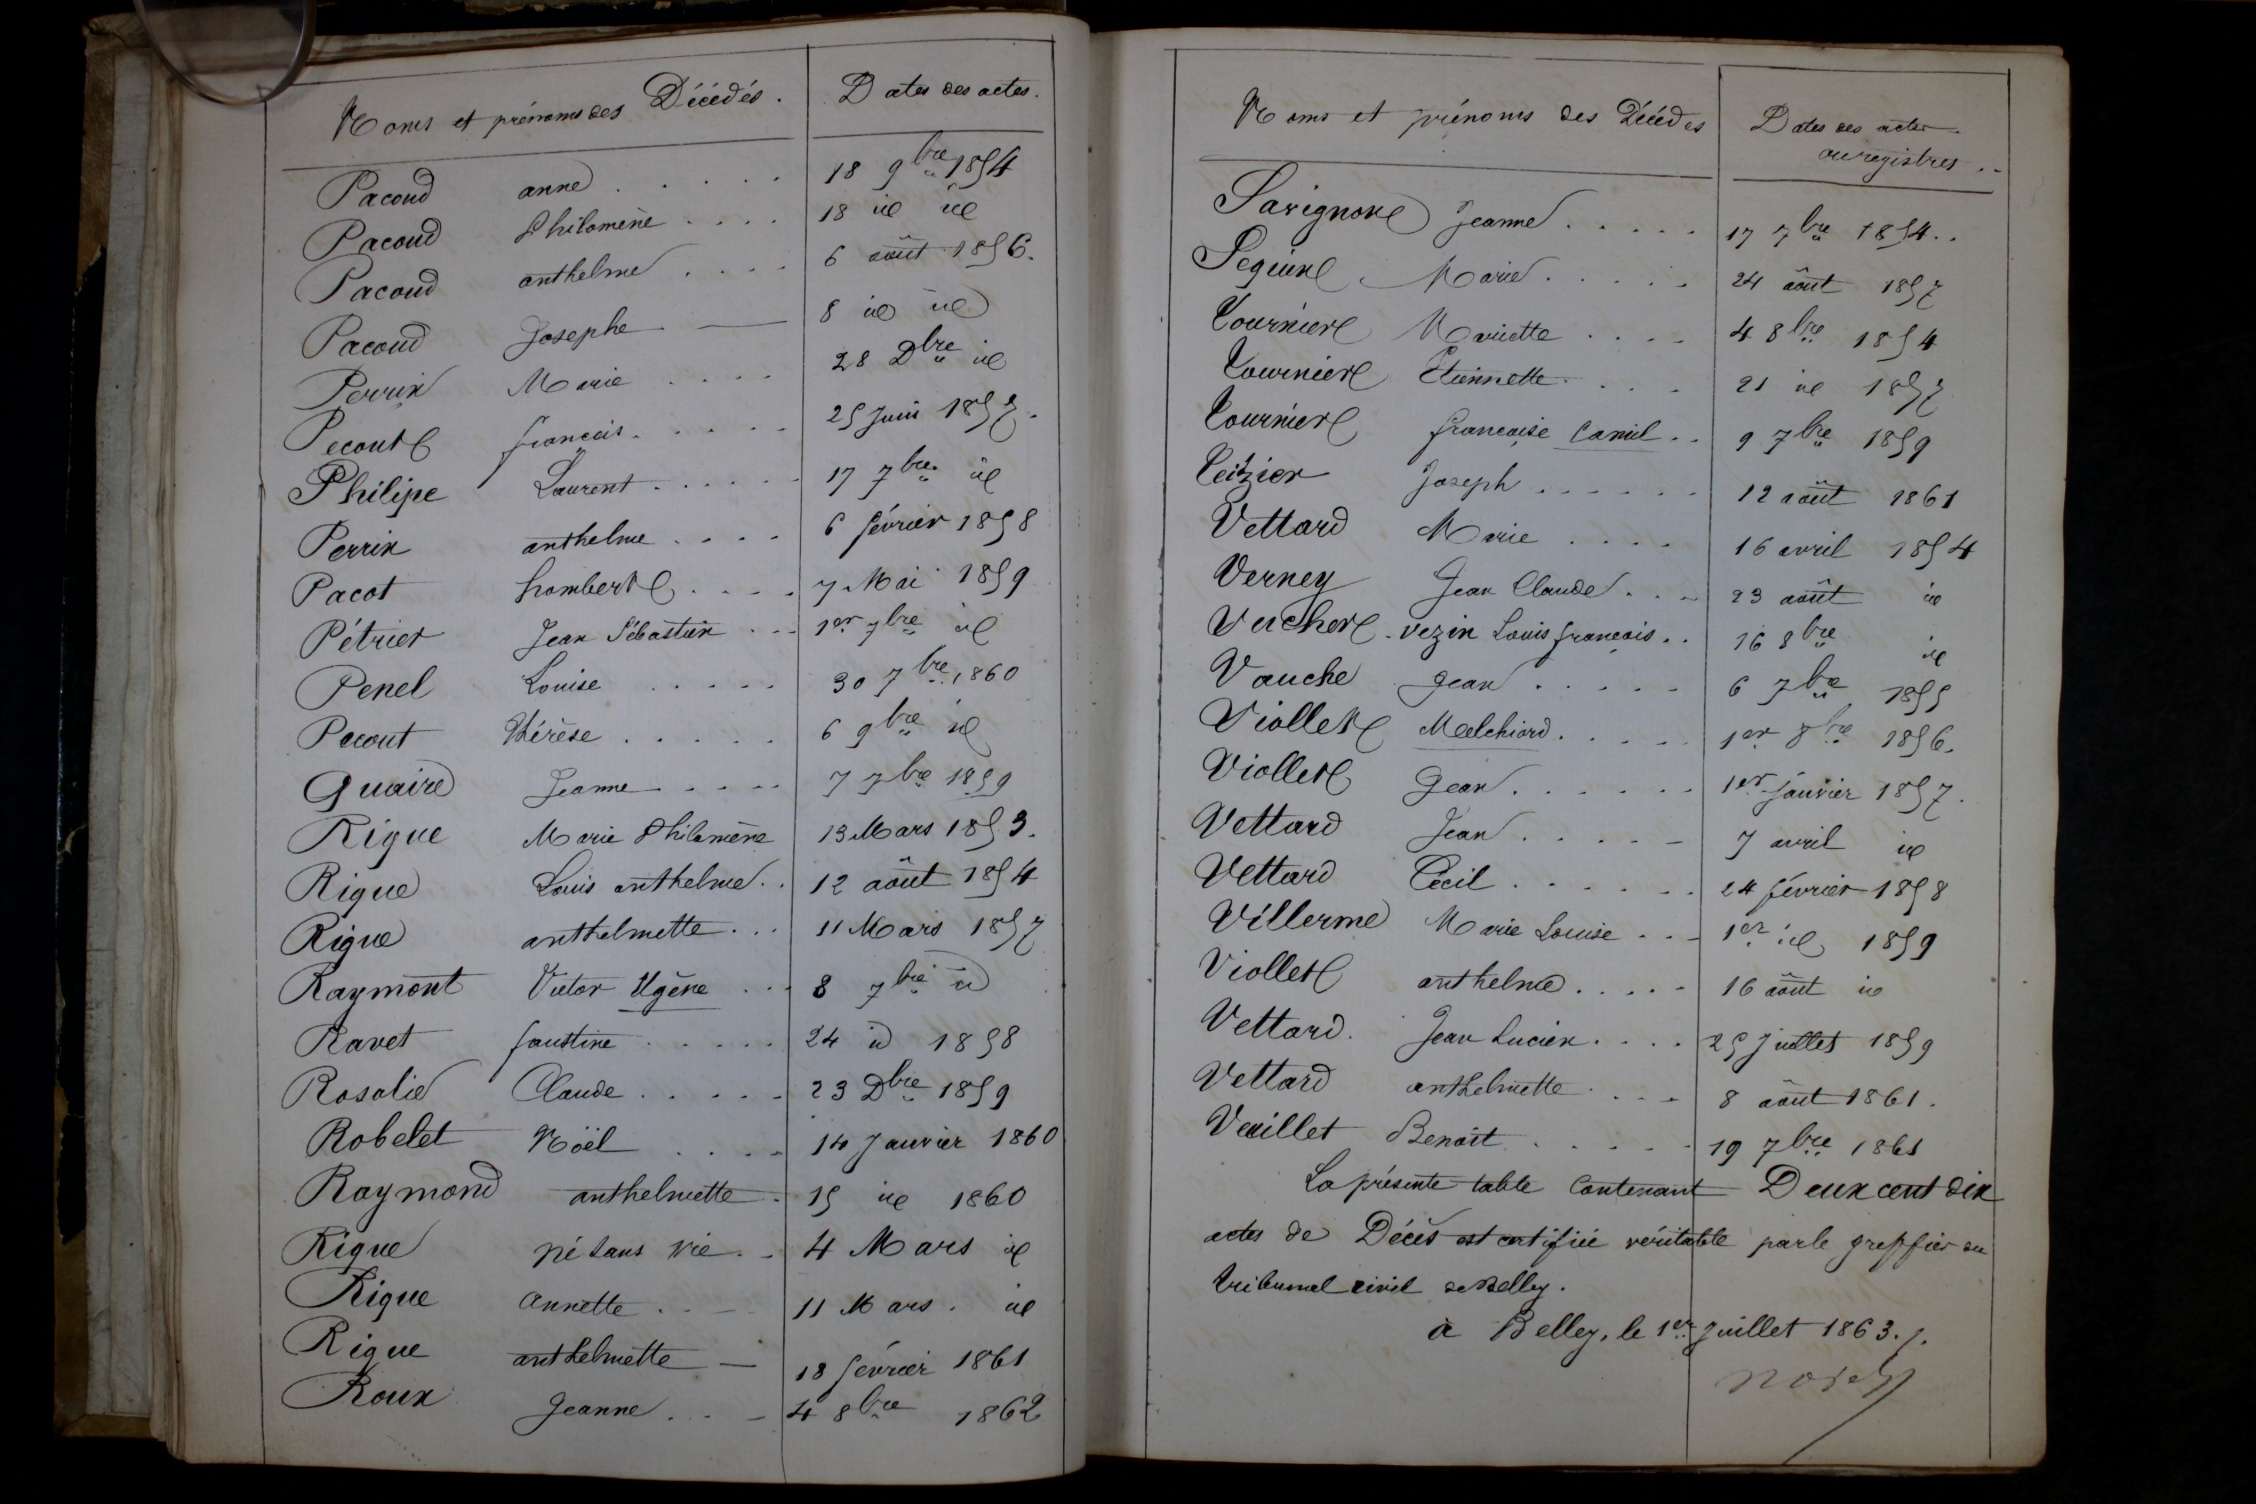 Noms et prénoms des Décédés. Dates des actes.
Pacoud anne . . . . . 18 9bre 1854
Pacoud Philomène . . . . 18 id id
Pacoud anthelme . . . . 6 août 1856.
Pacoud Josephe — 8 id id
Perrin Marie . . . . 28 Dbre id
Pecout françois . . . . . 25 Juin 1857.
Philipe Laurent . . . . . 17 7bre id
Perrin anthelme . . . . 6 février 1858
Pacot hombert . . . . 7 Mai 1859
Pétrier Jean Sébastien . . . 1er 7bre id
Penel Louise . . . . . 30 7bre 1860
Pecout Thérèse . . . . . 6 9bre id
Quaire Jeanne . . . . 7 7bre 1859
Rigue Marie Philomène 13 Mars 1853.
Rigue Louis anthelme . . 12 août 1854
Rigue anthelmette . . . 11 Mars 1857
Raymont Victor Ugène . . . 8 7bre id
Ravet faustine . . . . . 24 id 1858
Rosalie Claude . . . . . 23 Dbre 1859
Robelet Nöël . . . . 14 Janvier 1860
Raymond anthelmette . 15 id 1860
Rigue né sans vie . . 4 Mars id
Rigue annette . . . 11 Mars . id
Rigue anthelmette — 18 février 1861
Roux Jeanne . . . 4 8bre 1862
Noms et prénoms des Décédés Dates des actes
ou registres . .
Savignon Jeanne . . . . . 17 7bre 1854 . .
Seguin Marie . . . . . 24 août 1857
Tournier Mariette . . . . 4 8bre 1854
Tournier Etiennette . . . . 21 id 1857
Tournier francoise Camil . . 9 7bre 1859
Teizier Joseph . . . . . . 12 août 1861
Vettard Marie . . . . 16 avril 1854
Verney Jean Claude . . . 23 août id
Vercher . vezin Louis françois . . 16 8bre id
Vauche Jean . . . . . 6 7bre 1855
Viollet Melchiord . . . . . 1er 8bre 1856.
Viollet Jean . . . . . . 1er Janvier 1857.
Vettard Jean . . . . . 7 avril id
Vettard Cécil . . . . . . 24 février 1858
Villerme Marie Louise . . . 1er id 1859
Viollet anthelme . . . . . 16 août id
Vettard. Jean Lucien . . . . 25 Juillet 1859
Vettard anthelmette . . . . 8 août 1861.
Veuillet Benoît . . . . . 19 7bre 1861
La présente table contenant Deux cent dix
actes de Décès est certifiée véritable par le greffier du
tribunal civil de Belley.
à Belley, le 1er Juillet 1863./.